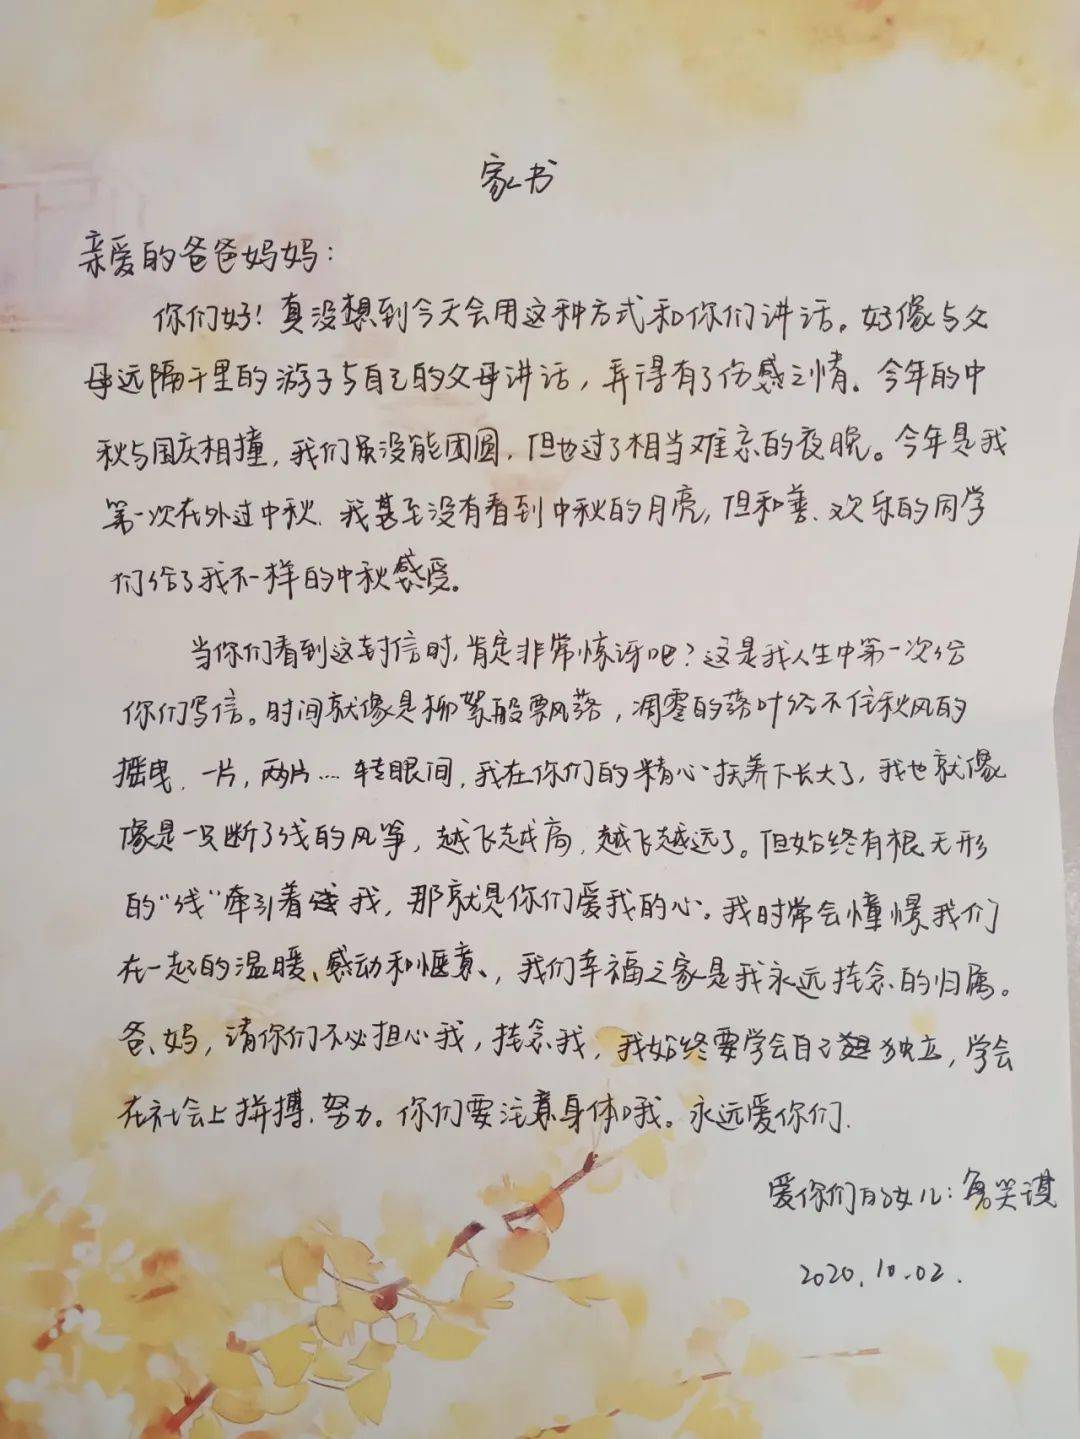 家书
亲爱的爸爸妈妈：
你们好！真没想到今天会用这种方式和你们讲话。好像与父
母远隔千里的游子与自己的父母讲话，弄得有了伤感之情。今年的中
秋与国庆相撞，我们虽没能团圆，但也过了相当难忘的夜晚。今年是我
第一次在外过中秋，我甚至没有看到中秋的月亮，但和善、欢乐的同学
们给了我不一样的中秋感受。
当你们看到这封信时，肯定非常惊讶吧？这是我人生中第一次给
你们写信。时间就像是柳絮般飘落，凋零的落叶经不住秋风的
摇曳，一片，两片…转眼间，我在你们的精心抚养下长大了，我也就像
像是一只断了线的风筝，越飞越高，越飞越远了。但始终有根无形
的“线”牵引着我，那就是你们爱我的心。我时常会憧憬我们
在一起的温暖、感动和惬意、，我们幸福之家是我永远挂念的归属。
爸、妈，请你们不必担心我，挂念我，我始终要学会自己独立，学会
在社会上拼搏、努力。你们要注意身体哦。永远爱你们.
爱你们的女儿：笑谋
2020.10.02.